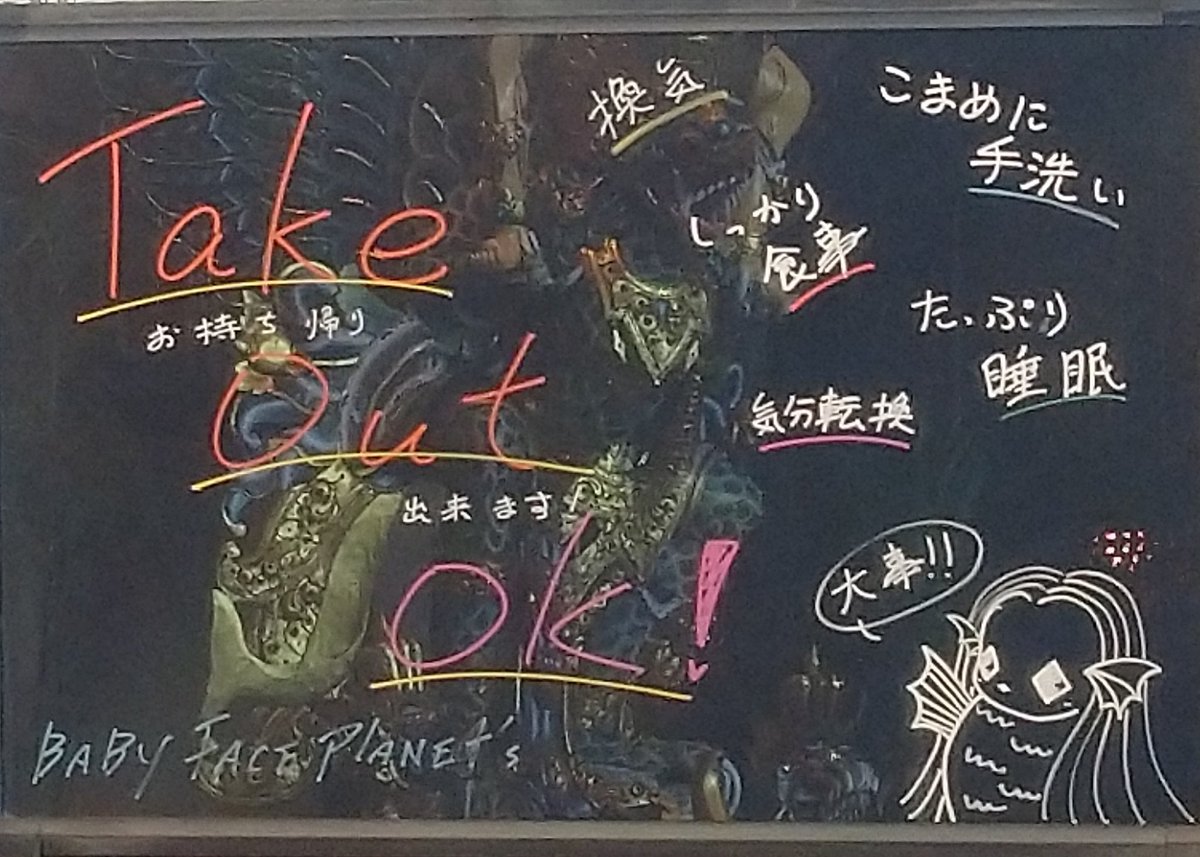 Take
お持ち帰り
Out
出来ます!
OK!
BABY FACE PLANET's
換気
こまめに
手洗い
しっかり
食事
たっぷり
睡眠
気分転換
大事!!